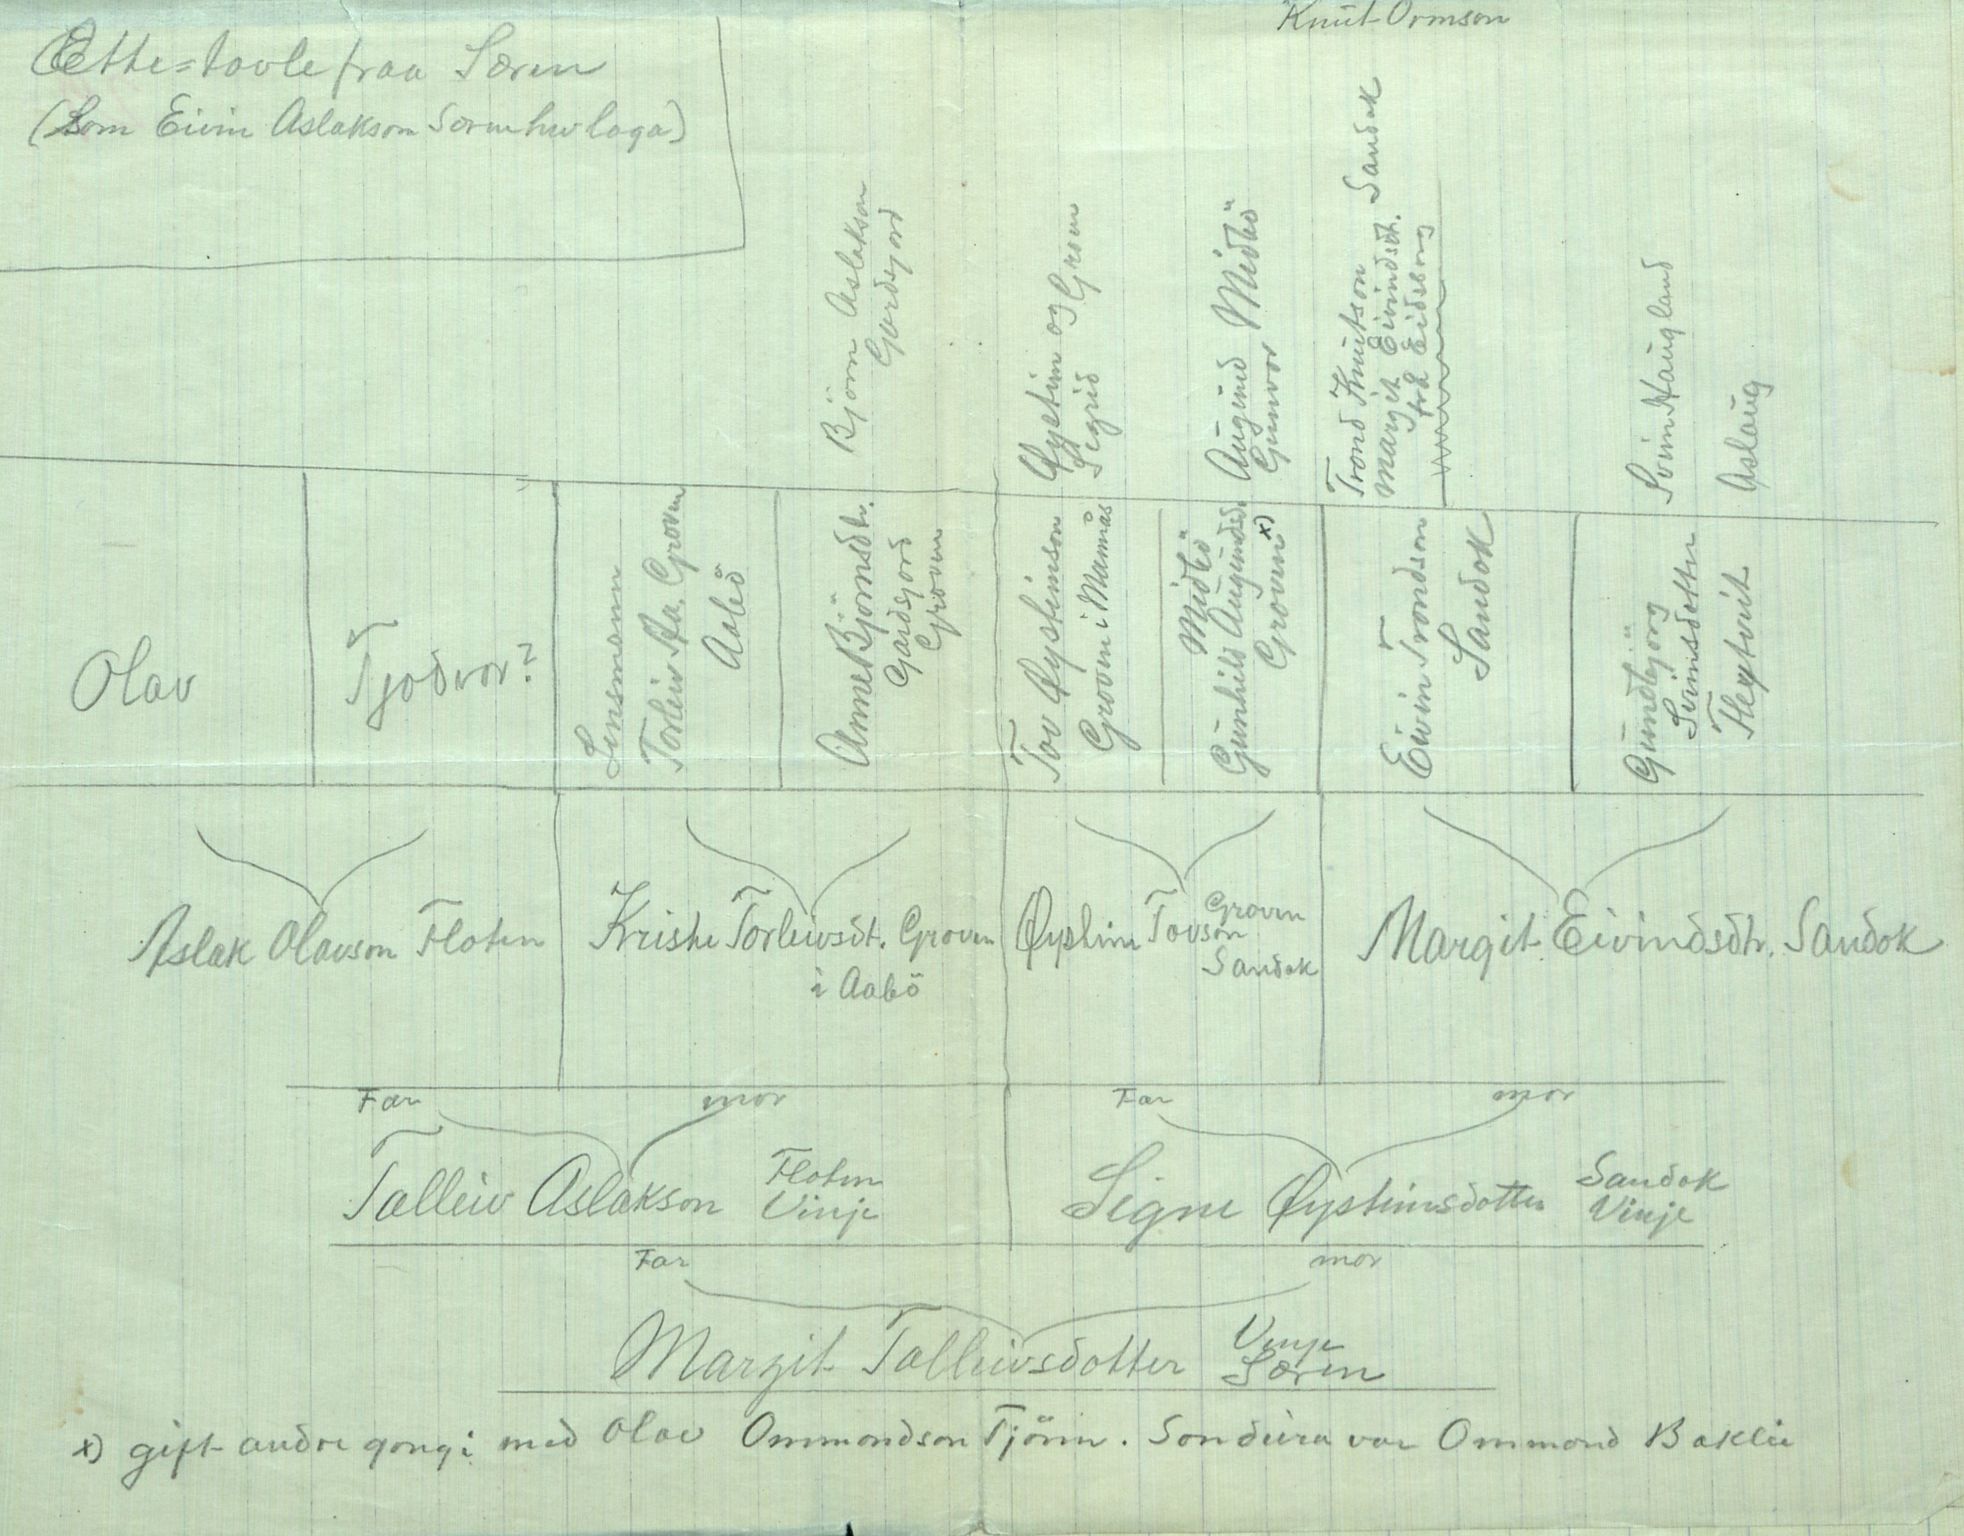 Knut Ormson
Ætte=tavle fraa Særen
(Som Eivin Aslakson Særen hev laga)
Bjørn Aslakson
Gardsjord
Øystein og
Sigrid Groven
Augund Midbö
Gunvor
Trond Knutson Sandok
Margit Eivindsdt.
frå Eidsborg
Svein Haugland
Aslaug
Olav
Tjodvor?
Lensmann
Torleiv Aa. Groven
Aabö
Anne Björnsdtr.
Gardsjord
Groven
Tov Øysteinson
Groven i Mannås
Midbö
Gunhild Augundsd.
Groven x)
Eivin Trondson
Sandok
Gundbjörg
Sveinsdotter
Flextveit
Aslak Olavson Floten
Kristi Torleivsdt. Groven
i Aabö
Øystein Tovson Groven
Sandok
Margit Eivindsdtr. Sandok
Far mor Far mor
Talleiv Aslakson Floten
Vinje
Signe Øysteinsdotter Sandok
Vinje
Far mor
Margit Talleivsdotter Vinje
Særen
x) gift andre gongi med Olav Ommondson Tjönn. Son deira var Ommond Baklii